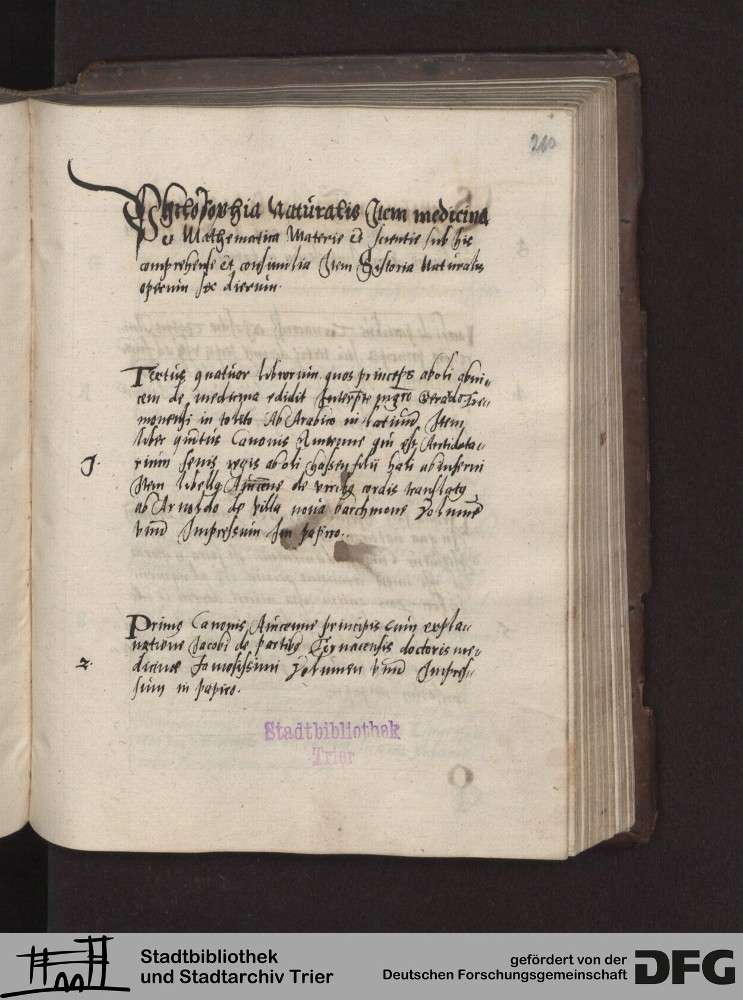 210
Philosophia Naturalis Item medicina
et Mathematica Materie et scientie sub his
comprehense et consimilia Item Historia Naturalis
operum sex dierum.
Textus quatuor librorum quos princeps aboli abui„
cem de medicina edidit Interprete mgro Gerardo Cre„
monensi in toleto Ab Arabico in latinum Item
liber quintus Canonis Auicenne qui est Antidota„
rium senis regis aboli hassen filij hali
1.
Item libellus Auicenne de viribus cordis translatus
ab Arnoldo de villa noua barchinone Volumen
vnum Impressum In papiro..
Primus Canonis Auicenne principis cum expla„
natione Jacobi de partibus Tornacensis doctoris me„
2.
dicine famosissimi Volumen vnum Impres„
sum in papiro.
Stadtbibliothek
Trier
Stadtbibliothek
und Stadtarchiv Trier
gefördert von der
Deutschen Forschungsgemeinschaft
DFG